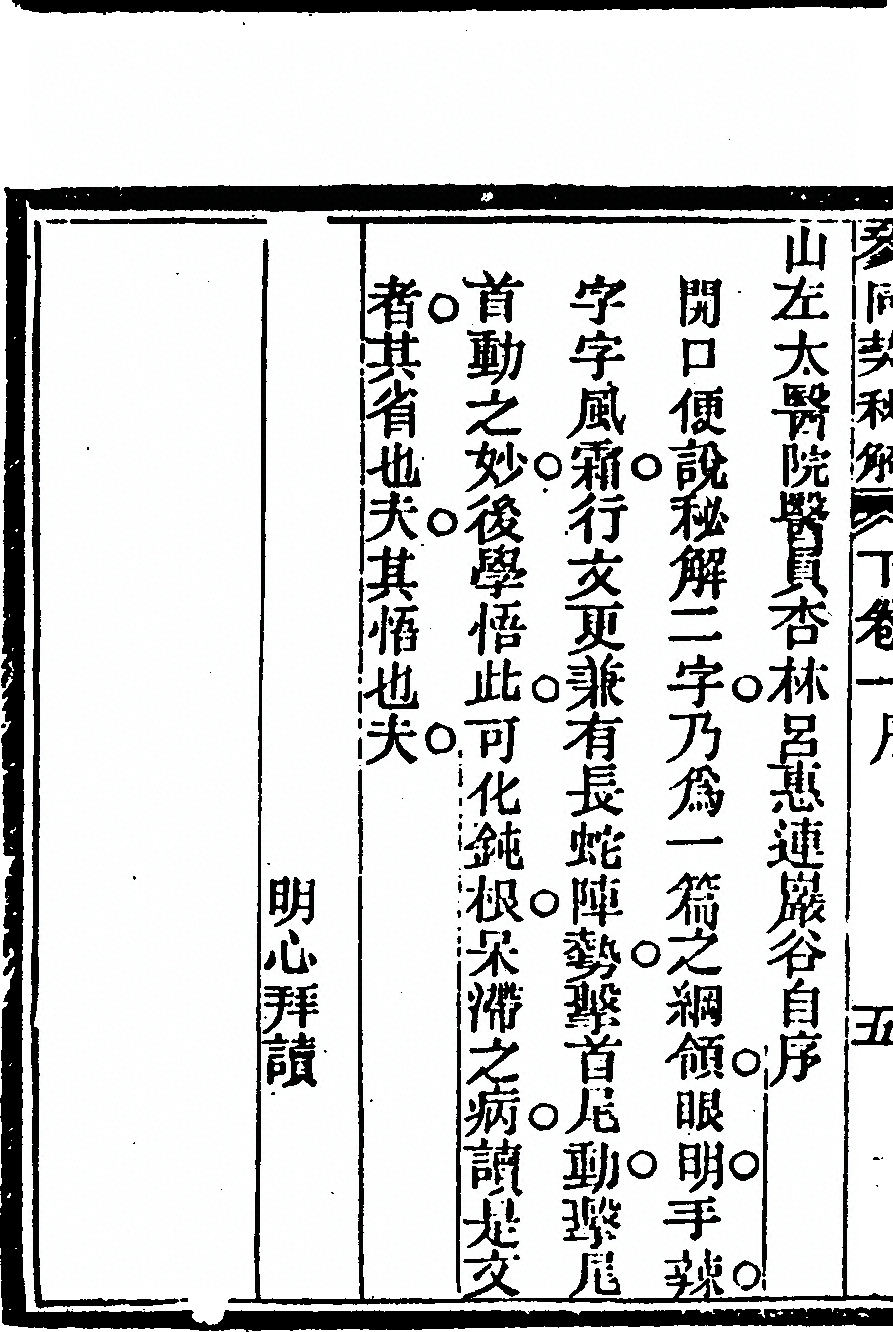 參同契秘解 下卷一序 五
山左太醫院醫員杏林呂惠連巖谷自序
開口便說秘解二字○乃為一篇之綱領○眼明○手辣○
字字風霜○行文更兼有長蛇陣勢○擊首尾動○擊尾
首動之妙○後學悟此○可化鈍根○呆滯之病○讀是文
者○其省也夫○其悟也夫○
明心拜讀